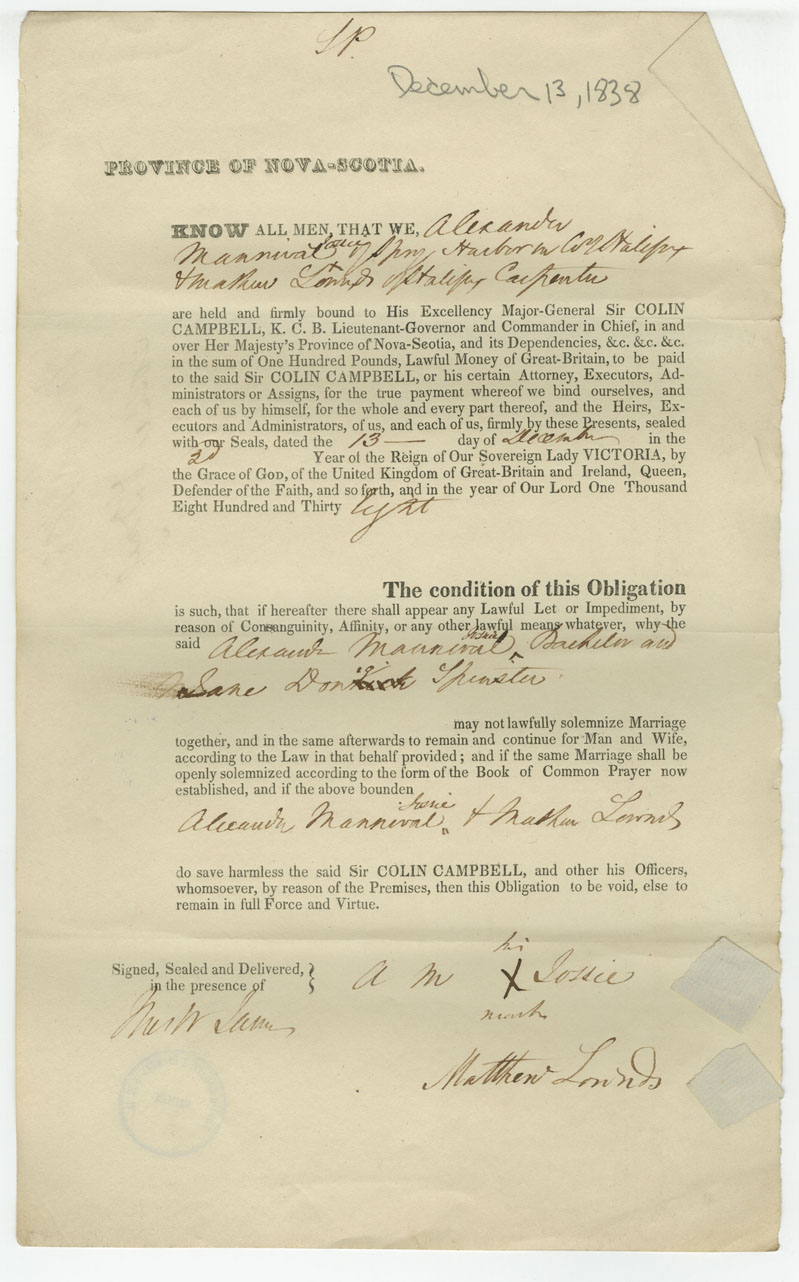 SP.
December 13, 1838
PROVINCE OF NOVA-SCOTIA.
KNOW ALL MEN, THAT WE, Alexander
Mannival of Spry Harbor in Co of Halifax
& Mathew Lownds of Halifax Carpenter
are held and firmly bound to His Excellency Major-General Sir COLIN
CAMPBELL, K. C. B. Lieutenant-Governor and Commander in Chief, in and
over Her Majesty's Province of Nova-Scotia, and its Dependencies, &c. &c. &c.
in the sum of One Hundred Pounds, Lawful Money of Great-Britain, to be paid
to the said Sir COLIN CAMPBELL, or his certain Attorney, Executors, Ad-
ministrators or Assigns, for the true payment whereof we bind ourselves, and
each of us by himself, for the whole and every part thereof, and the Heirs, Ex-
ecutors and Administrators, of us, and each of us, firmly by these Presents, sealed
with our Seals, dated the 13 — day of December in the
2d Year of the Reign of Our Sovereign Lady VICTORIA, by
the Grace of GOD, of the United Kingdom of Great-Britain and Ireland, Queen,
Defender of the Faith, and so forth, and in the year of Our Lord One Thousand
Eight Hundred and Thirty eight
The condition of this Obligation
is such, that if hereafter there shall appear any Lawful Let or Impediment, by
reason of Consanguinity, Affinity, or any other lawful means whatever, why the
said Alexander Mannival Jossie Bachelor and
Jane Spinster
may not lawfully solemnize Marriage
together, and in the same afterwards to remain and continue for Man and Wife,
according to the Law in that behalf provided; and if the same Marriage shall be
openly solemnized according to the form of the Book of Common Prayer now
established, and if the above bounden
Alexander Mannival Jossie & Mathew Lownds
do save harmless the said Sir COLIN CAMPBELL, and other his Officers,
whomsoever, by reason of the Premises, then this Obligation to be void, else to
remain in full Force and Virtue.
Signed, Sealed and Delivered,
in the presence of
his
A M X Jossie
mark
Matthew Lownds